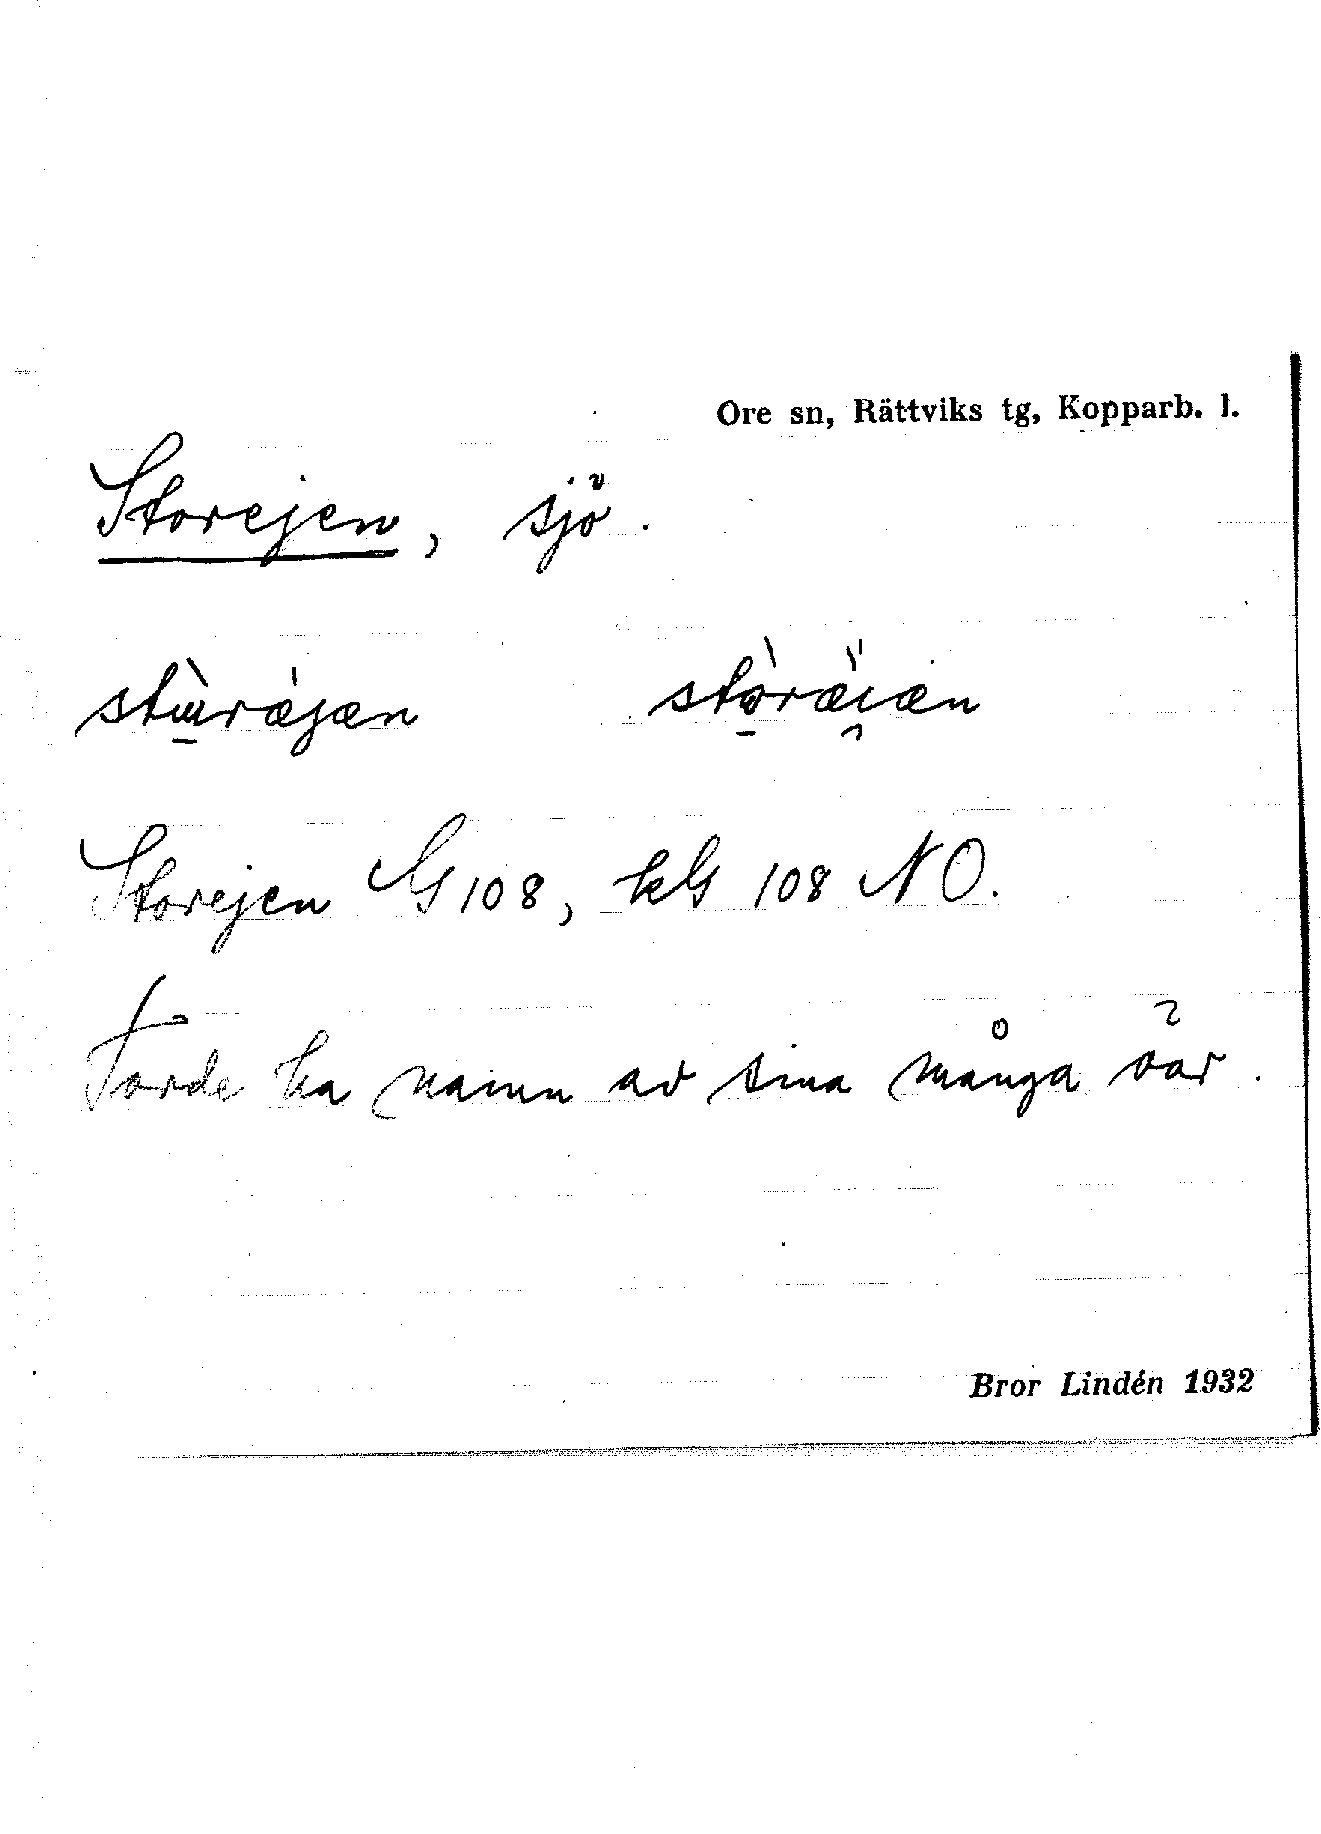 Ore sn, Rättviks tg, Kopparb. l.
Storejen, sjö.
stùrǽjæn stòræ̂i̯æn
Storejen G 108, kG 108 NO.
Torde ha namn av sina många öar.
Bror Lindén 1932